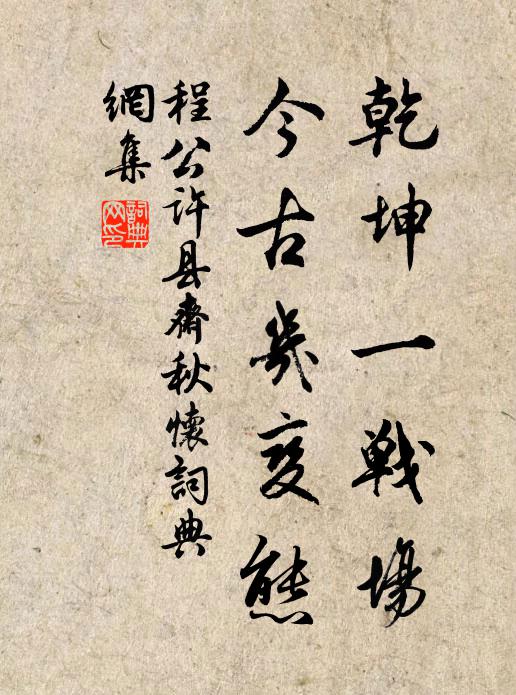 乾坤一戰場
今古幾变態
程公許县齋秋懷詞典
網集
詞典
网印